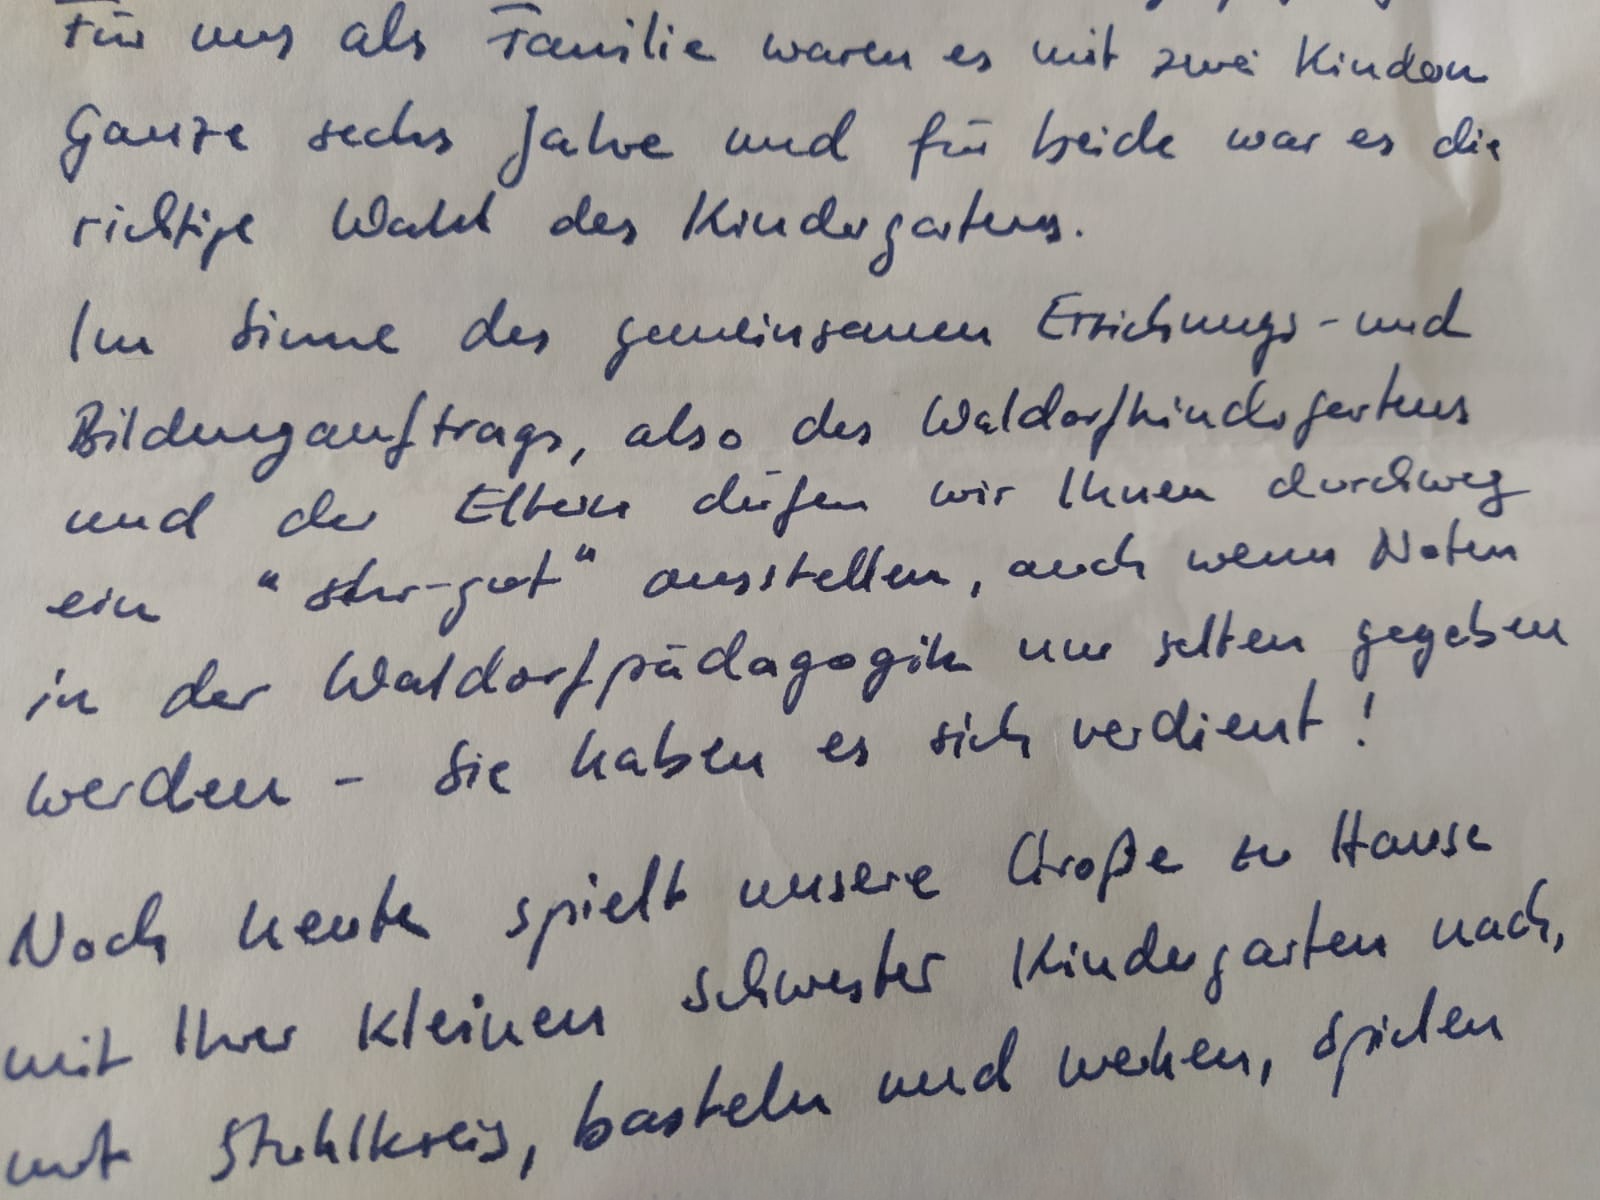 Für uns als Familie waren es mit zwei Kindern
Ganze sechs Jahre und für beide war es die
richtige Wahl des Kindergartens.
Im Sinne des gemeinsamen Erziehungs-und
Bildungauftrags, also des Waldorfkindergartens
und der Eltern dürfen wir Ihnen durchweg
ein "sehr-gut" ausstellen, auch wenn Noten
in der Waldorfpädagogik nur selten gegeben
werden - Sie haben es sich verdient!
Noch heute spielt unsere Große zu Hause
mit Ihrer kleinen Schwester Kindergarten nach,
mit Stuhlkreis, basteln und weken, spielen